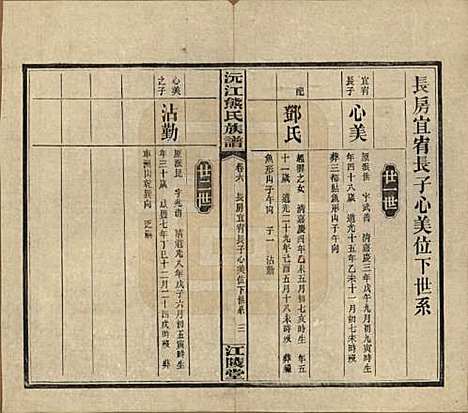 長房宜宥長子心美位下世系
廿一世
宜宥
長子
心美
原派佐 字武善 清嘉慶三年戊午九月初六寅時生
年四十八歲 道光十五年乙未十一月初七未時歿
葬三梅
魚形丙子午向
配
鄧氏
之女 清嘉慶四年己未五月初七亥時生 年五
十一歲 道光二十九年己酉五月十八未時歿 葬
魚形丙子午向 子一 沾勤
沅江熊氏族譜
卷六 長房宜宥長子心美位下世系 三
江陵堂
廿二世
心美
之子
沾勤
原派 字光 清道光八年戊子六月初五寅時生
年三十歲 咸豐七年丁巳十二月二十四戌時歿 葬
車 山乾巽向 乏嗣